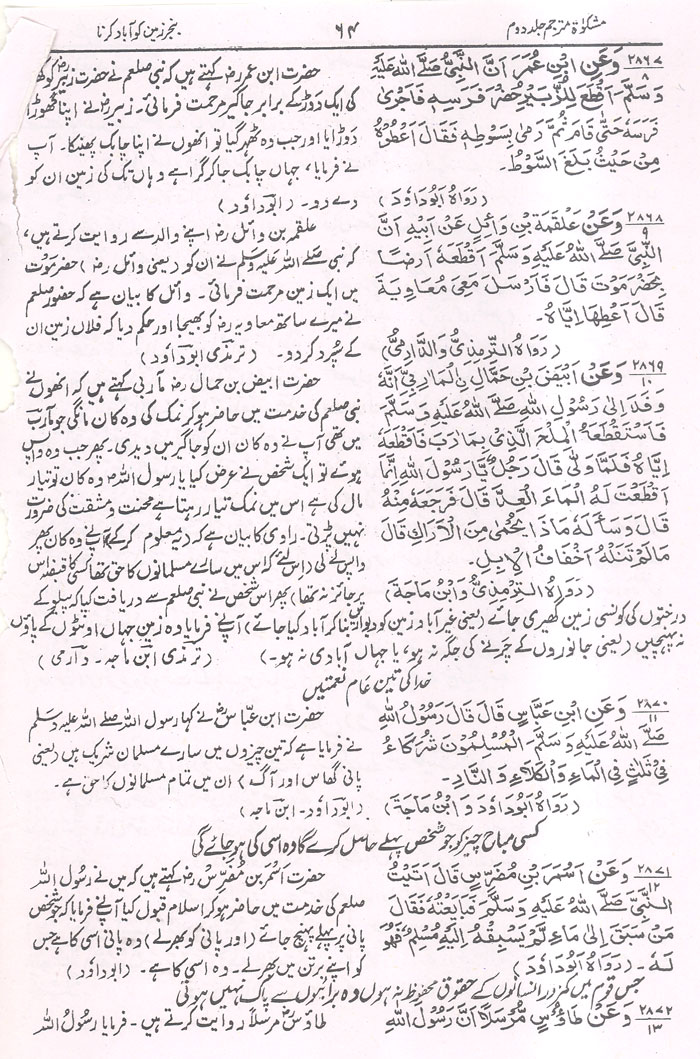 مشکوٰۃ مترجم جلد دوم
۶۴
بنجر زمین کو آباد کرنا
۲۸۶۷
۸
وَعَنِ ابْنِ عُمَرَ اَنَّ النَّبِیَّ صَلَّے اللہُ عَلَیْہِ
وَسَلَّمَ اَقْطَعَ لِلزُّبَیْرِ حُضْرَ فَرَسِہٖ فَاَجْرٰی
فَرَسَہٗ حَتّٰی قَامَ ثُمَّ رَمٰی بِسَوْطِہٖ فَقَالَ اَعْطُوْہُ
مِنْ حَیْثُ بَلَغَ السَّوْطُ۔
(رَوَاہُ اَبُوْدَاوٗدَ)
حضرت ابن عمر رضہ کہتے ہیں کہ نبی صلعم نے حضرت زبیر رضہ کو
کی ایک دَوڑ کے برابر جاگیر مرحمت فرمائی۔ زبیر رضہ نے اپنا گھوڑا
دوڑایا اور جب وہ ٹھہر گیا تو انھوں نے اپنا چابک پھینکا۔ آپ
نے فرمایا، جہاں چابک جا کر گرا ہے وہاں تک کی زمین ان کو
دے دو۔ (ابوداوٗد)
۲۸۶۸
۹
وَعَنْ عَلْقَمَۃَ بْنِ وَائِلٍ عَنْ اَبِیْہِ اَنَّ
النَّبِیَّ صَلَّی اللہُ عَلَیْہِ وَسَلَّمَ اَقْطَعَہٗ اَرْضًا
بِحَضْرَ مَوْتَ قَالَ فَاَرْسَلَ مَعِیَ مُعَاوِیَۃَ
قَالَ اَعْطِہَا اِیَّاہُ۔
(رَوَاہُ التِّرْمِذِیُّ وَالدَّارِمِیُّ)
علقمہ بن وائل رضہ اپنے والد سے روایت کرتے ہیں،
کہ نبی صلے اللہ علیہ وسلم نے ان کو (یعنی وائل رضہ) حضرموت
میں ایک زمین مرحمت فرمائی۔ وائل کا بیان ہے کہ حضور صلعم
نے میرے ساتھ معاویہ رضہ کو بھیجا اور حکم دیا کہ فلاں زمین ان
کے سپرد کر دو۔ (ترمذی ابوداوٗد)
۲۸۶۹
۱۰
وَعَنْ اَبْیَضَ بْنِ حَمَّالِ نِ الْمَارِبِیِّ اَنَّہٗ
وَفَدَ اِلٰی رَسُوْلِ اللہِ صَلَّی اللہُ عَلَیْہِ وَسَلَّمَ
فَاسْتَقْطَعَہُ الْمِلْحَ الَّذِیْ بِمَارَبَ فَاَقْطَعَہٗ
اِیَّاہُ فَلَمَّا وَلّٰی قَالَ رَجُلٌ یَّا رَسُوْلَ اللہِ اِنَّمَا
اَقْطَعْتَ لَہُ الْمَاءَ الْعِدَّ قَالَ فَرَجَعَہٗ مِنْہُ
قَالَ وَسَاَلَہٗ مَاذَا یُحْمٰی مِنَ الْاَرَاکِ قَالَ
مَالَمْ تَنَلْہُ اَخْفَافُ الْاِبِلِ۔
(رَوَاہُ التِّرْمِذِیُّ وَابْنُ مَاجَۃَ)
حضرت ابیض بن حمال رضہ مأربی کہتے ہیں کہ انھوں نے
نبی صلعم کی خدمت میں حاضر ہو کر نمک کی وہ کان مانگی جو مآرب
میں تھی آپ نے وہ کان ان کو جاگیر میں دیدی۔ پھر جب وہ واپس
ہوئے تو ایک شخص نے عرض کیا یا رسول اللہ وہ کان تو تیار
مال کی ہے اس میں نمک تیار رہتا ہے محنت و مشقت کی ضرورت
نہیں پڑتی۔ راوی کا بیان ہے کہ (یہ معلوم کر کے) آپنے وہ کان پھر
واپس لے لی (اس لئے کہ اس میں سارے مسلمانوں کا حق تھا کسی کا قبضہ اس
پر جائز نہ تھا) پھر اس شخص نے نبی صلعم سے دریافت کیا کہ پیلو کے
درختوں کی کونسی زمین گھیری جائے (یعنی غیر آباد زمین کو دیواریں بنا کر آباد کیا جائے) آپنے فرمایا وہ زمین جہاں اونٹوں کے پاؤں
نہ پہنچیں (یعنی جانوروں کے چرنے کی جگہ نہ ہو، یا جہاں آبادی نہ ہو۔) (ترمذی ابن ماجہ۔ دارمی)
خدا کی تین عام نعمتیں
۲۸۷۰
۱۱
وَعَنِ ابْنِ عَبَّاسٍ قَالَ قَالَ رَسُوْلُ اللہِ
صَلَّے اللہُ عَلَیْہِ وَسَلَّمَ اَلْمُسْلِمُوْنَ شُرَکَاءُ
فِیْ ثَلٰثٍ فِی الْمَاءِ وَالْکَلَاءِ وَالنَّارِ۔
(رَوَاہُ اَبُوْدَاوٗدَ وَابْنُ مَاجَۃَ)
حضرت ابن عباس رضہ نے کہا رسول اللہ صلے اللہ علیہ وسلم
نے فرمایا ہے کہ تین چیزوں میں سارے مسلمان شریک ہیں (یعنی
پانی گھاس اور آگ) ان میں تمام مسلمانوں کا حق ہے۔
(ابوداوٗد۔ ابن ماجہ)
کسی مباح چیز کو جو شخص پہلے حاصل کرے گا وہ اسی کی ہو جائے گی
۲۸۷۱
۱۲
وَعَنْ اَسْمَرَ بْنِ مُضَرِّسٍ قَالَ اَتَیْتُ
النَّبِیَّ صَلَّی اللہُ عَلَیْہِ وَسَلَّمَ فَبَایَعْتُہٗ فَقَالَ
مَنْ سَبَقَ اِلٰی مَاءٍ لَّمْ یَسْبِقْہُ اِلَیْہِ مُسْلِمٌ فَہُوَ
لَہٗ۔ (رَوَاہُ اَبُوْدَاوٗدَ)
حضرت اَسمر بن مُضرِّس رضہ کہتے ہیں کہ میں نے رسُول اللہ
صلعم کی خدمت میں حاضر ہو کر اسلام قبول کیا آپنے فرمایا کہ جو شخص
پانی پر پہلے پہنچ جائے (اور پانی کو بھر لے) وہ پانی اسی کا ہے جس
کو اپنے برتن میں بھر لے۔ وہ اسی کا ہے۔ (ابوداوٗد)
جس قوم میں کمزور انسانوں کے حقوق محفوظ نہ ہوں وہ برائیوں سے پاک نہیں ہوتی
۲۸۷۲
۱۳
وَعَنْ طَاوٗسٍ مُّرْسَلًا اَنَّ رَسُوْلَ اللہِ
طاوٗس رضہ مرسلاً روایت کرتے ہیں۔ فرمایا رسُولُ اللہ